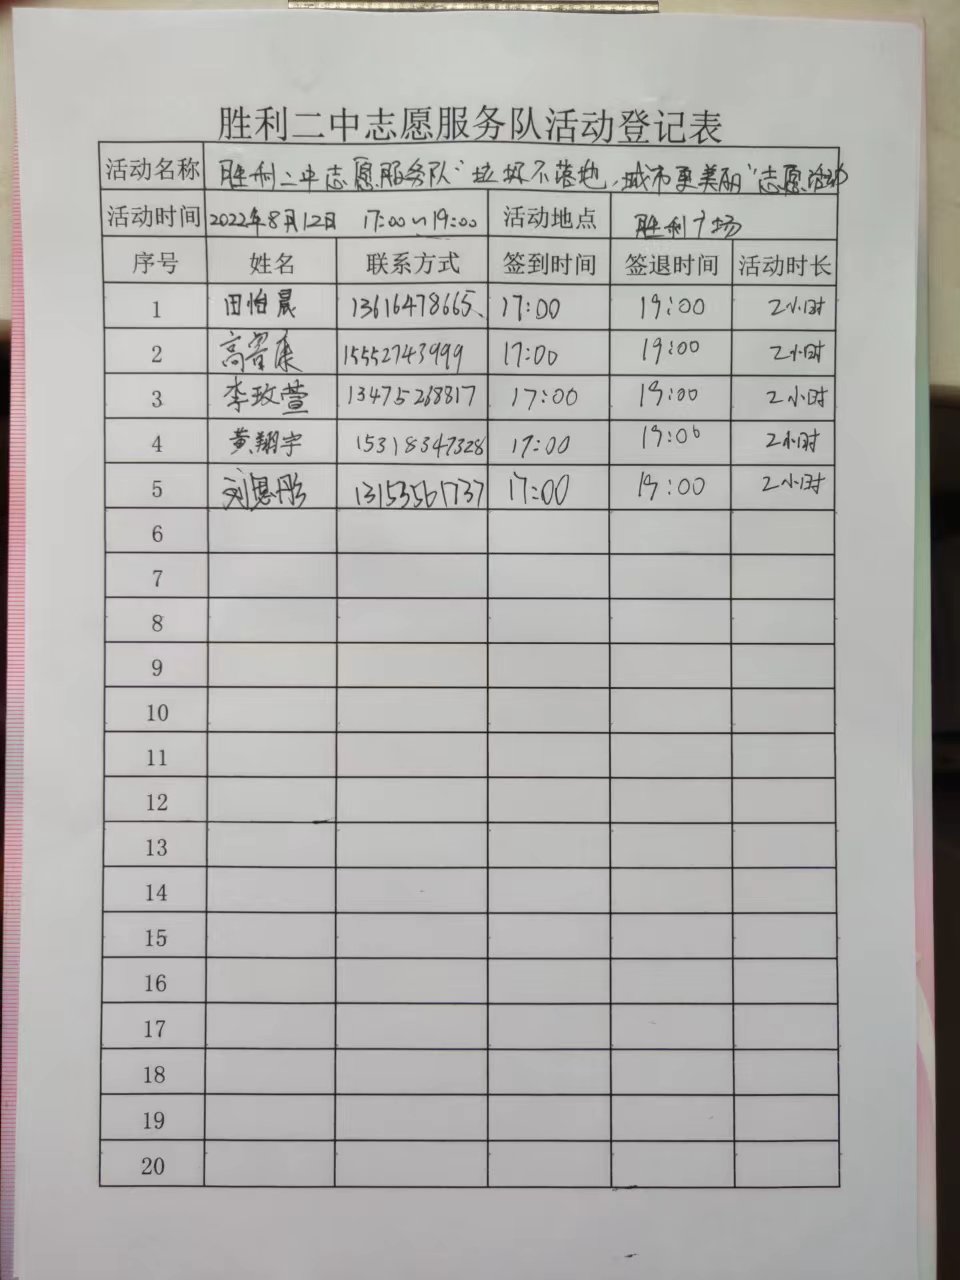 胜利二中志愿服务队活动登记表
活动名称 胜利二中志愿服务队"垃圾不落地,城市更美丽"志愿活动
活动时间 2022年8月12日 17:00~19:00 活动地点 胜利广场
序号 姓名 联系方式 签到时间 签退时间 活动时长
1 田怡晨 13616478665 17:00 19:00 2小时
2 高 康 15552743999 17:00 19:00 2小时
3 李玫萱 13475268817 17:00 19:00 2小时
4 黄翔宇 15318347328 17:00 19:00 2小时
5 刘思彤 13153561737 17:00 19:00 2小时
6
7
8
9
10
11
12
13
14
15
16
17
18
19
20